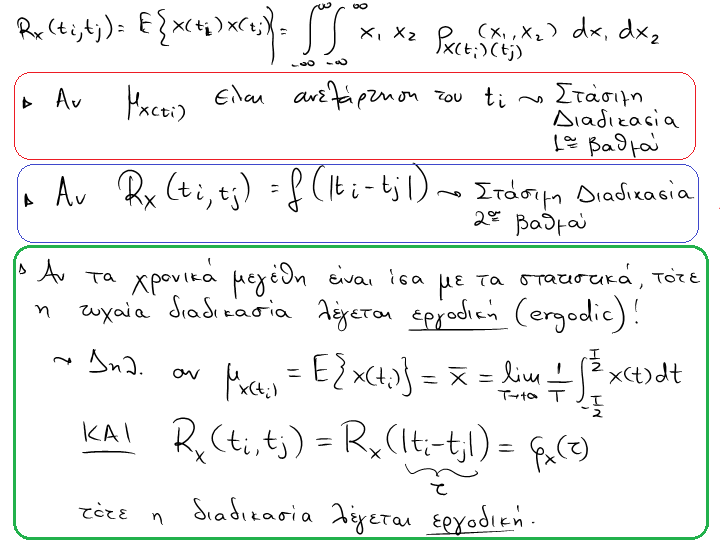 R_x(t_i,t_j) = E{x(t_i)x(t_j)} = ∫_{-∞}^{∞} ∫_{-∞}^{∞} x_1 x_2 p_{x(t_i)(t_j)}(x_1,x_2) dx_1 dx_2
▹ Αν μ_{x(t_i)} είναι ανεξάρτηση του t_i ⤳ Στάσιμη
Διαδικασία
1^{ου} βαθμού
▹ Αν R_x(t_i,t_j) = f(|t_i-t_j|) ⤳ Στάσιμη Διαδικασία
2^{ου} βαθμού
▹ Αν τα χρονικά μεγέθη είναι ίσα με τα στατιστικά, τότε
η τυχαία διαδικασία λέγεται εργοδική (ergodic)!
⤳ Δηλ. αν μ_{x(t_i)} = E{x(t_i)} = x̄ = lim_{T→+∞} 1/T ∫_{-T/2}^{T/2} x(t)dt
ΚΑΙ R_x(t_i,t_j) = R_x(|t_i-t_j|) = φ_x(τ)
τ
τότε η διαδικασία λέγεται εργοδική.